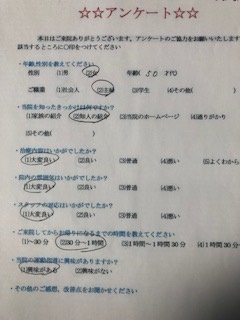 ☆☆アンケート☆☆
本日はご来院ありがとうございます。アンケートのご協力をお願いいたします
該当するところに○印をつけてください
・年齢,性別を教えてください
性別 (1)男 (2)女 年齢( 50 才代)
ご職業 (1)社会人 (2)主婦 (3)学生 (4)その他(
・当院を知ったきっかけは何ですか?
(1)家族の紹介 (2)知人の紹介 (3)当院のホームページ (4)通りがかり
(5)その他( )
・治療内容はいかがでしたか?
(1)大変良い (2)良い (3)普通 (4)悪い (5)よくわから
・院内の雰囲気はいかがでしたか?
(1)大変良い (2)良い (3)普通 (4)悪い
・スタッフの対応はいかがでしたか?
(1)大変良い (2)良い (3)普通 (4)悪い
・ご来院してからお帰りになるまでの時間を教えてください
(1)~30分 (2)30分~1時間 (3)1時間~1時間30分 (4)1時間30
・当院の運動指導に興味がありますか?
(1)興味がある (2)興味がない
・その他のご感想、改善点をお聞かせください